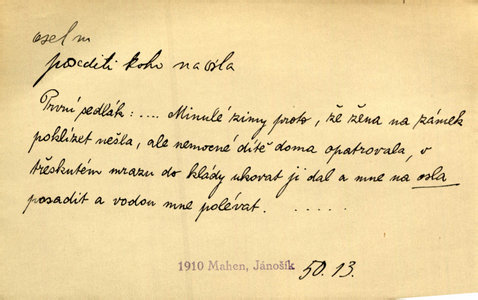 osel m
posditi koho na osla
První sedlák: .... Minulé zimy proto, že žena na zámek
poklízet nešla, ale nemocné dítě doma opatrovala, v
třeskutém mrazu do klády ukovat ji dal a mne na osla
posadit a vodou mne polévat. .....
1910 Mahen, Jánošík 50.13.